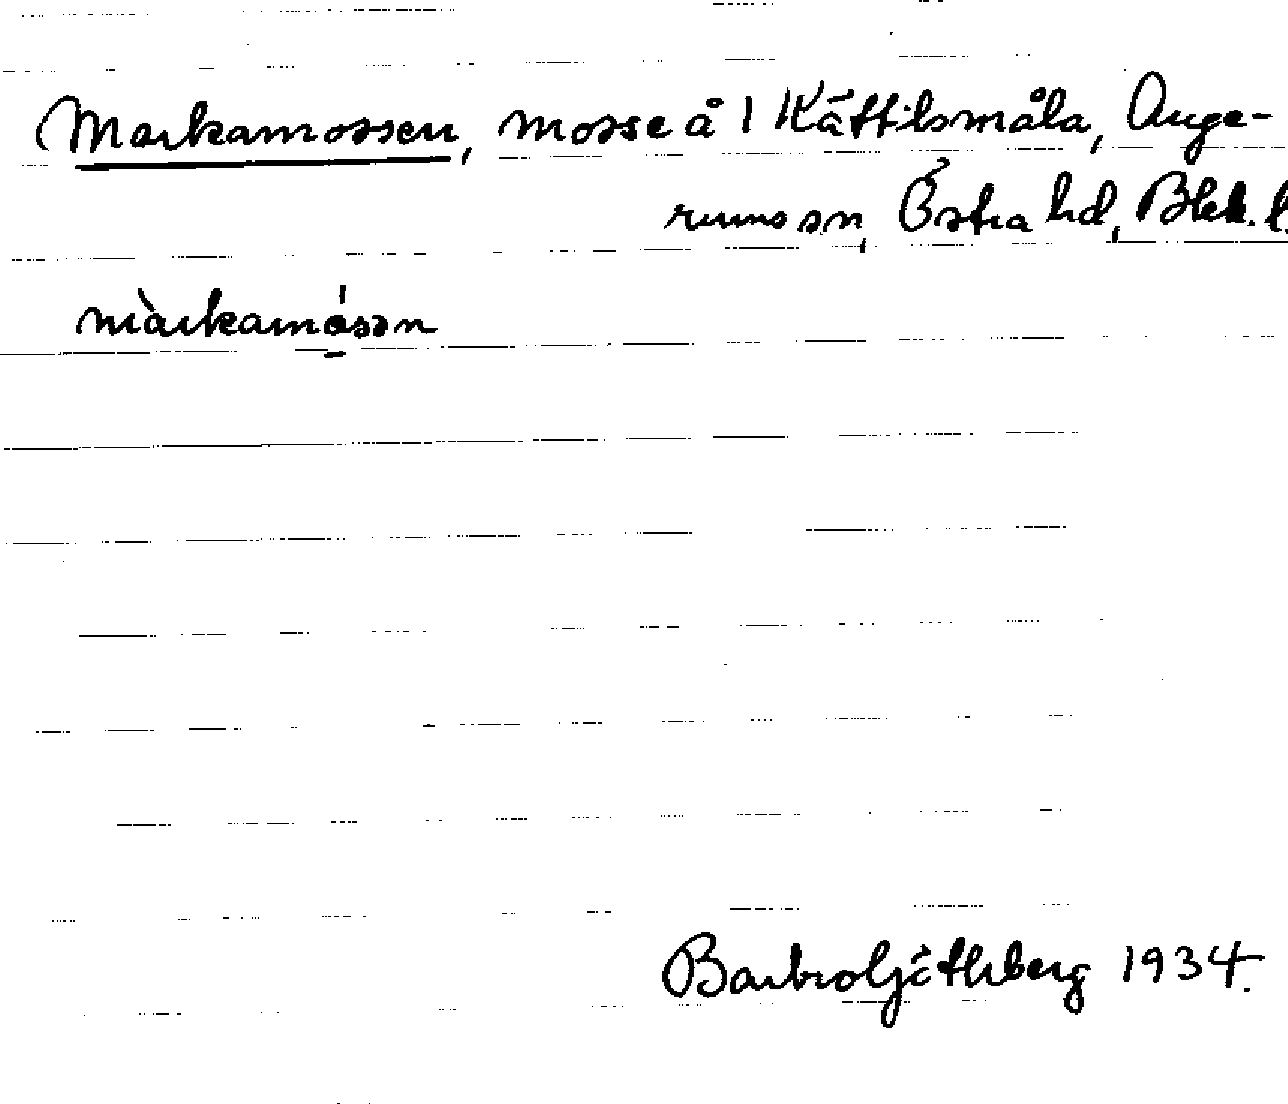 Markamossen, mosse å 1 Kättilsmåla, Ange-
rums sn, Östra hd, Blek. l.
màrkamósən
Barbro Göthberg 1934.